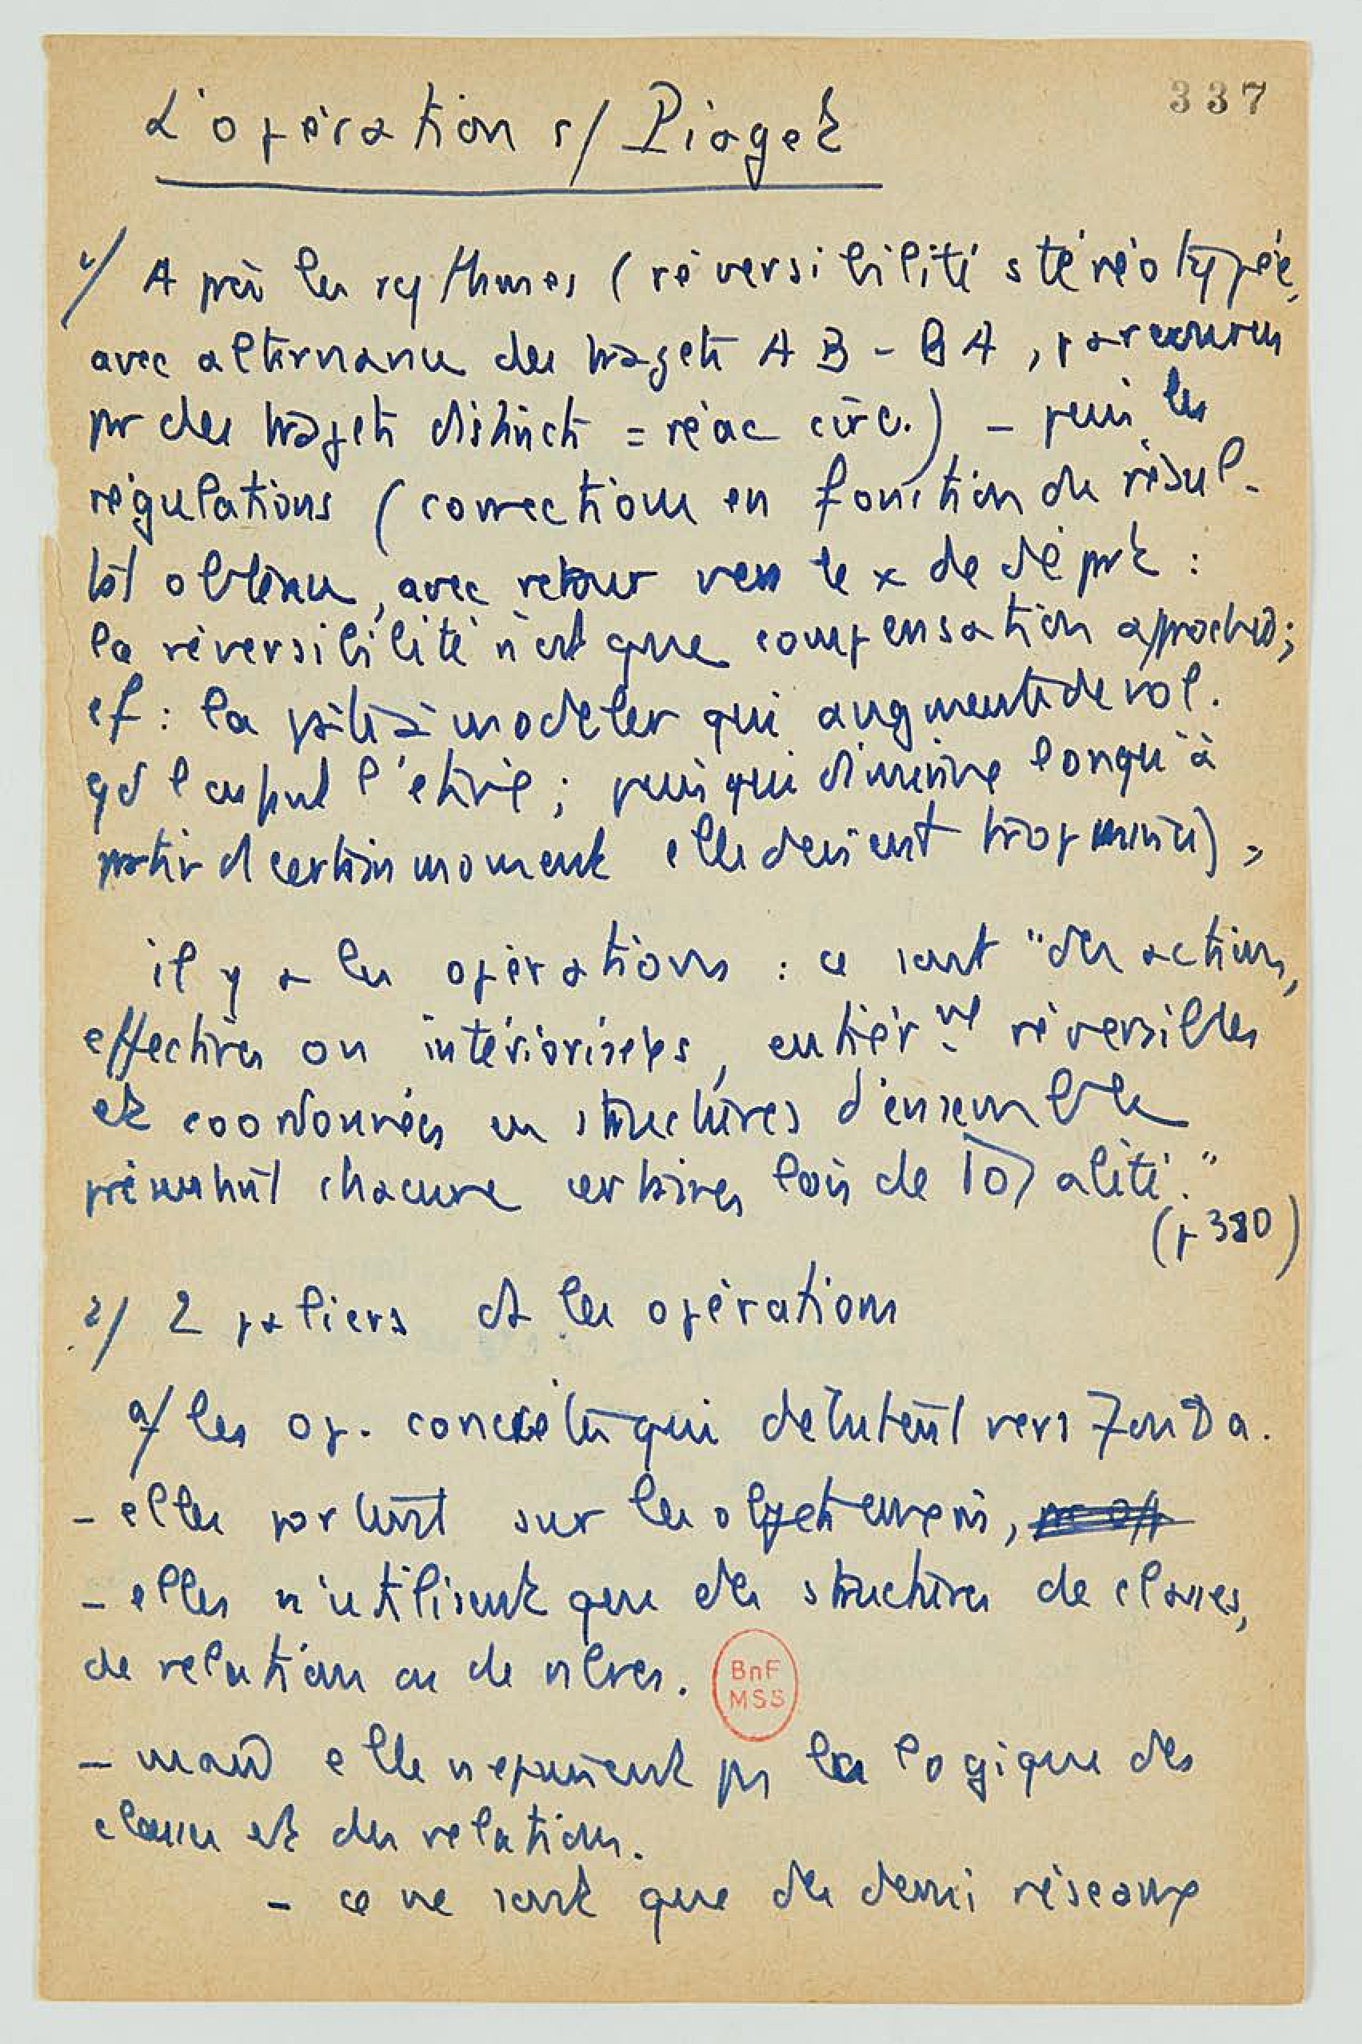 337
L'opération s/ Piaget
1/ Après les rythmes (réversibilité stéréotypée,
avec alternance des trajets AB - BA, parcourus
pr des trajets distincts = réac circ.) - puis les
régulations (corrections en fonction du résul-
tat obtenu, avec retour vers le x de dépt :
la réversibilité n'est que compensation approchée;
cf : la pâte à modeler qui augmente de vol.
qd l'étire; puis qui diminue lorsqu'à
partir d certain moment elle devient trop mince),
il y a les opérations : ce sont "des actions,
effectives ou intériorisées, entièrmt réversibles
et coordonnées en structures d'ensemble
présentant chacune certaines lois de totalité."
(p 380)
2/ 2 paliers ds les opérations
a/ les op. concrètes qui débutent vers 7 ou 8 a.
- elles portent sur les objets mêmes,
- elles n'utilisent que des structures de classes,
de relations ou de nbres.
BnF
MSS
- mais elle n'épuisent ps la logique des
classes et des relations.
- ce ne sont que des demi réseaux